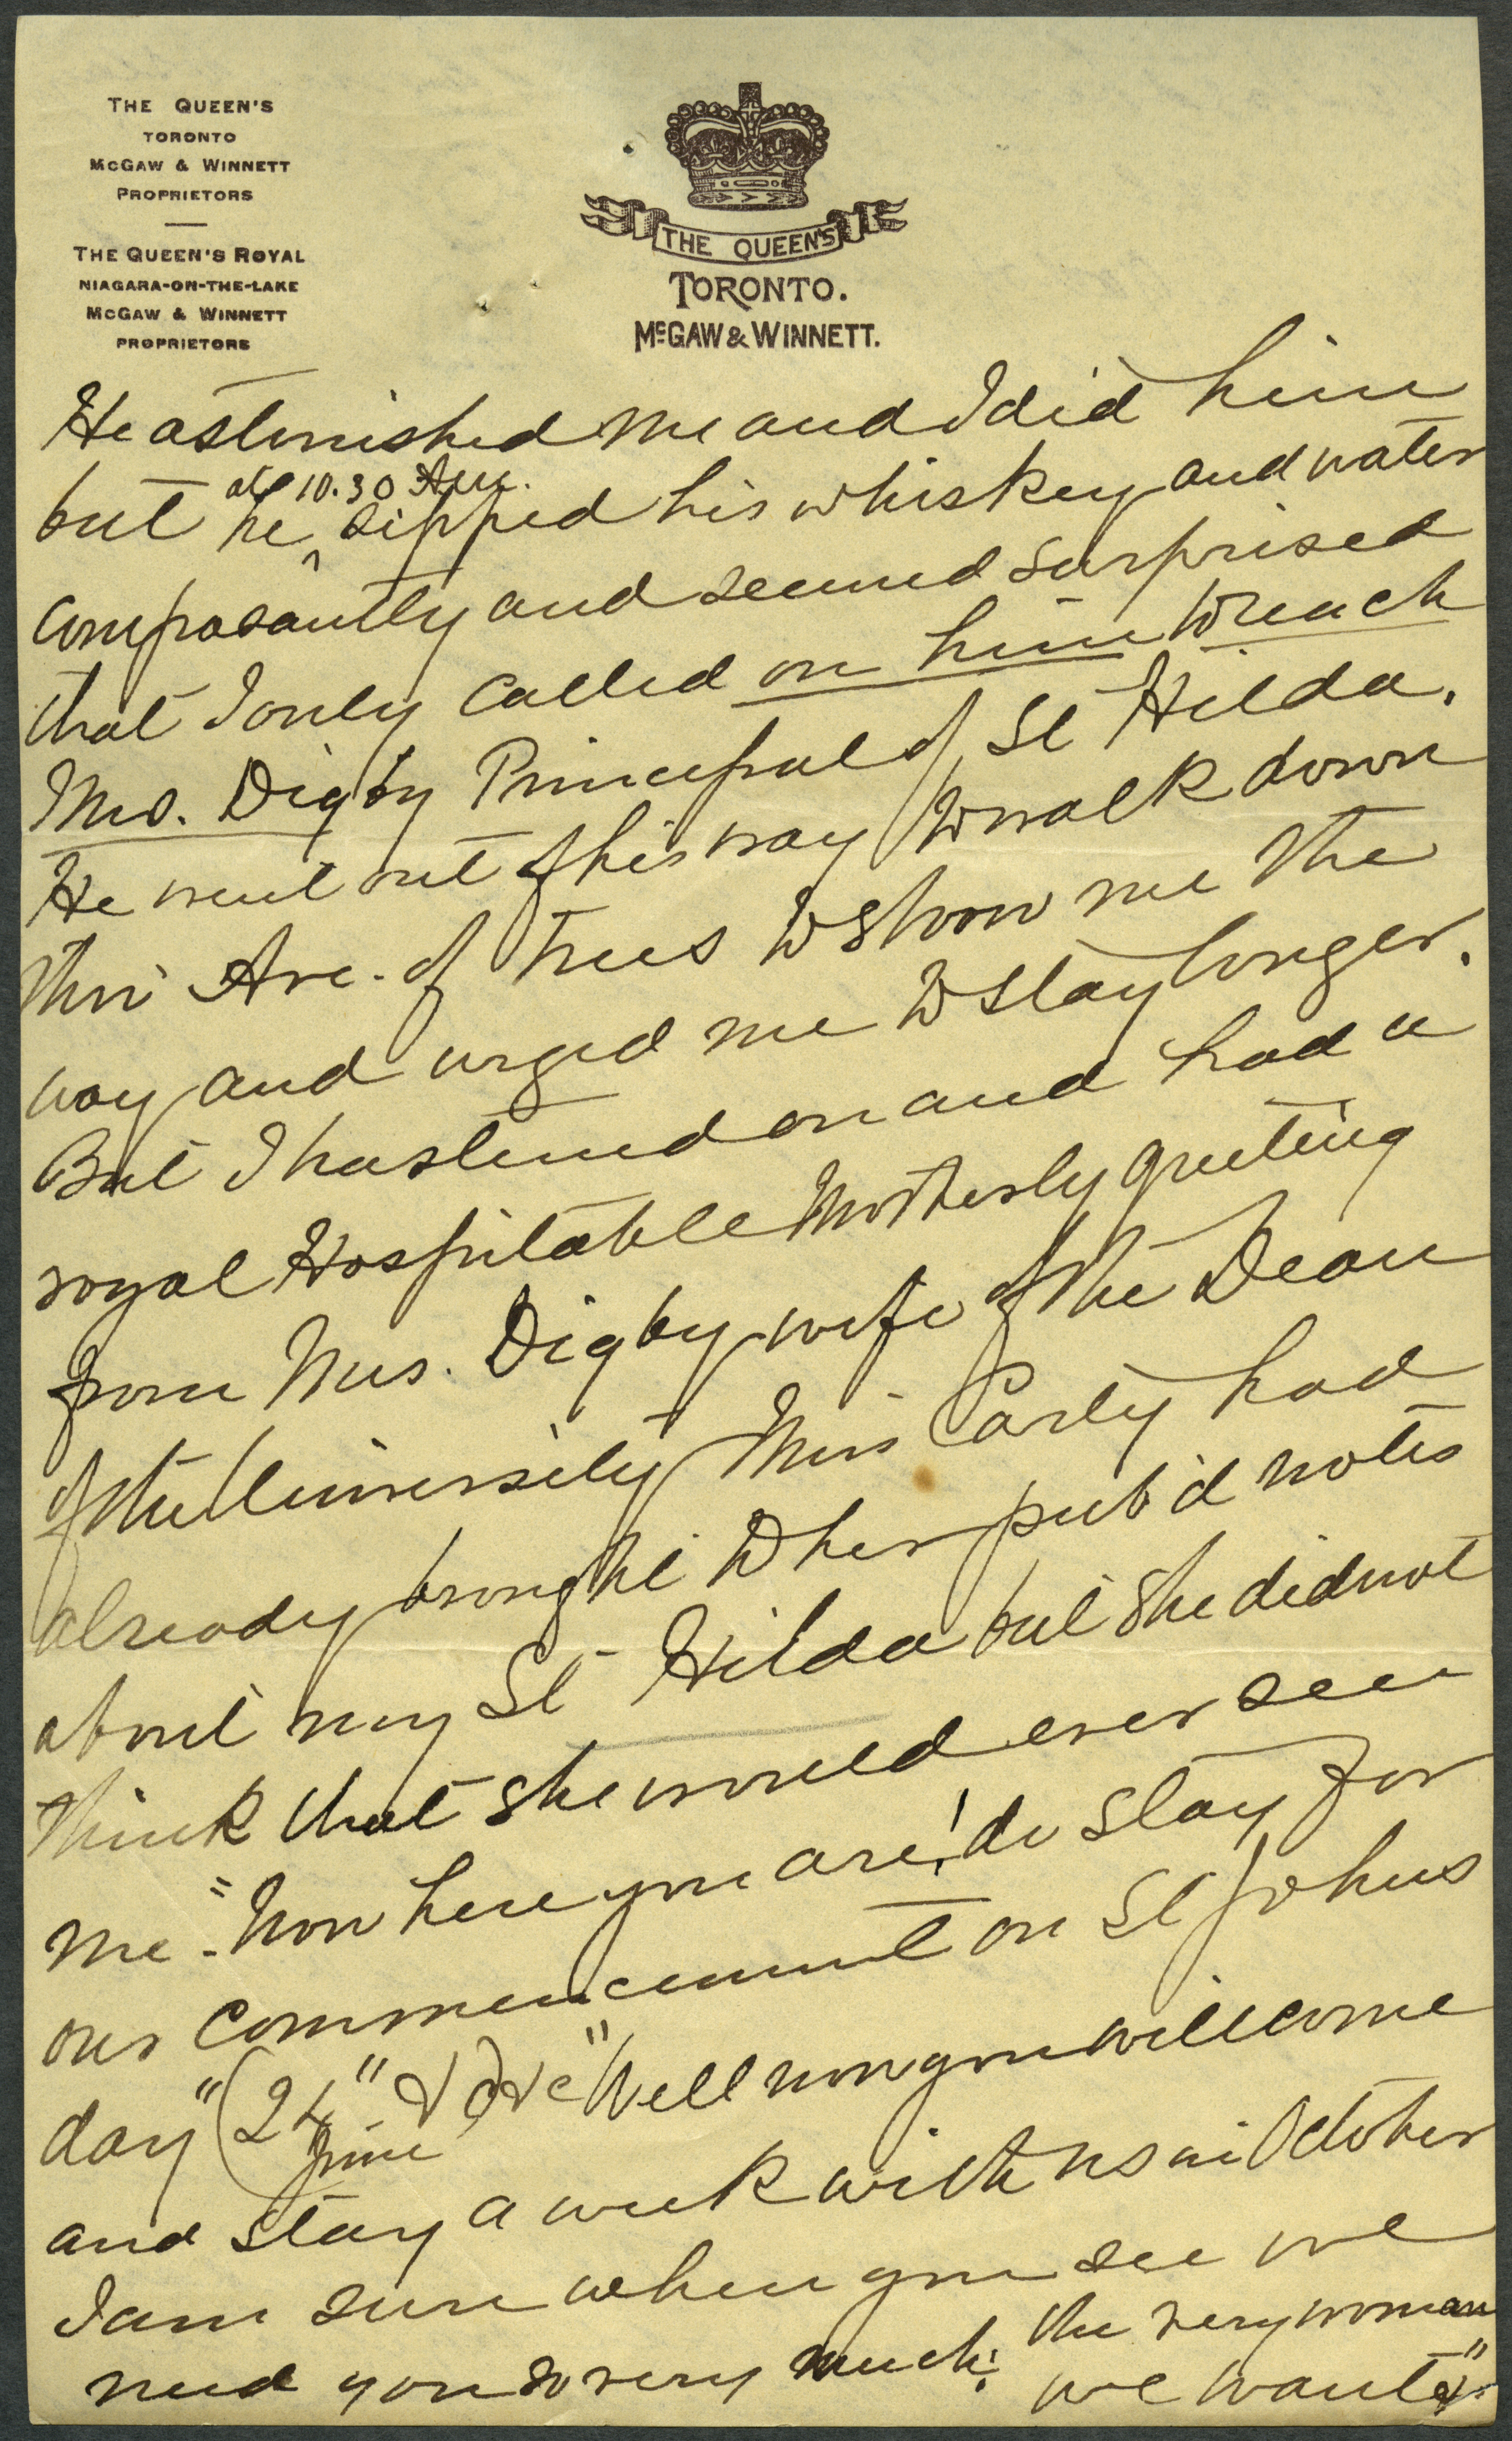 THE QUEEN'S
TORONTO
MCGAW & WINNETT
PROPRIETORS
THE QUEEN'S ROYAL
NIAGARA-ON-THE-LAKE
MCGAW & WINNETT
PROPRIETORS
THE QUEEN'S
TORONTO.
McGAW & WINNETT.
He astonished me and I did him
at 10.30 A.M.
but he ^ sipped his whiskey and water
and seemed surprised
that I only called on him to reach
Mrs. Digby Principal of St Hilda.
He went out of his way to walk down
their Ave. of Trees to show me the
way and urged me to stay longer.
But I hastened on and had a
royal Hospitable Motherly greeting
from Mrs. Digby wife of the Dean
of the University Miss Carty had
already brought to her pub'd notes
about my St Hilda but she did not
think that she would ever see
me - "Now here you are! do stay for
our Commencement on St Johns
day" (24" June &c) "Well now you will come
and stay a week with us in October
I am sure when you see we
need you so very much: the very woman
we want"